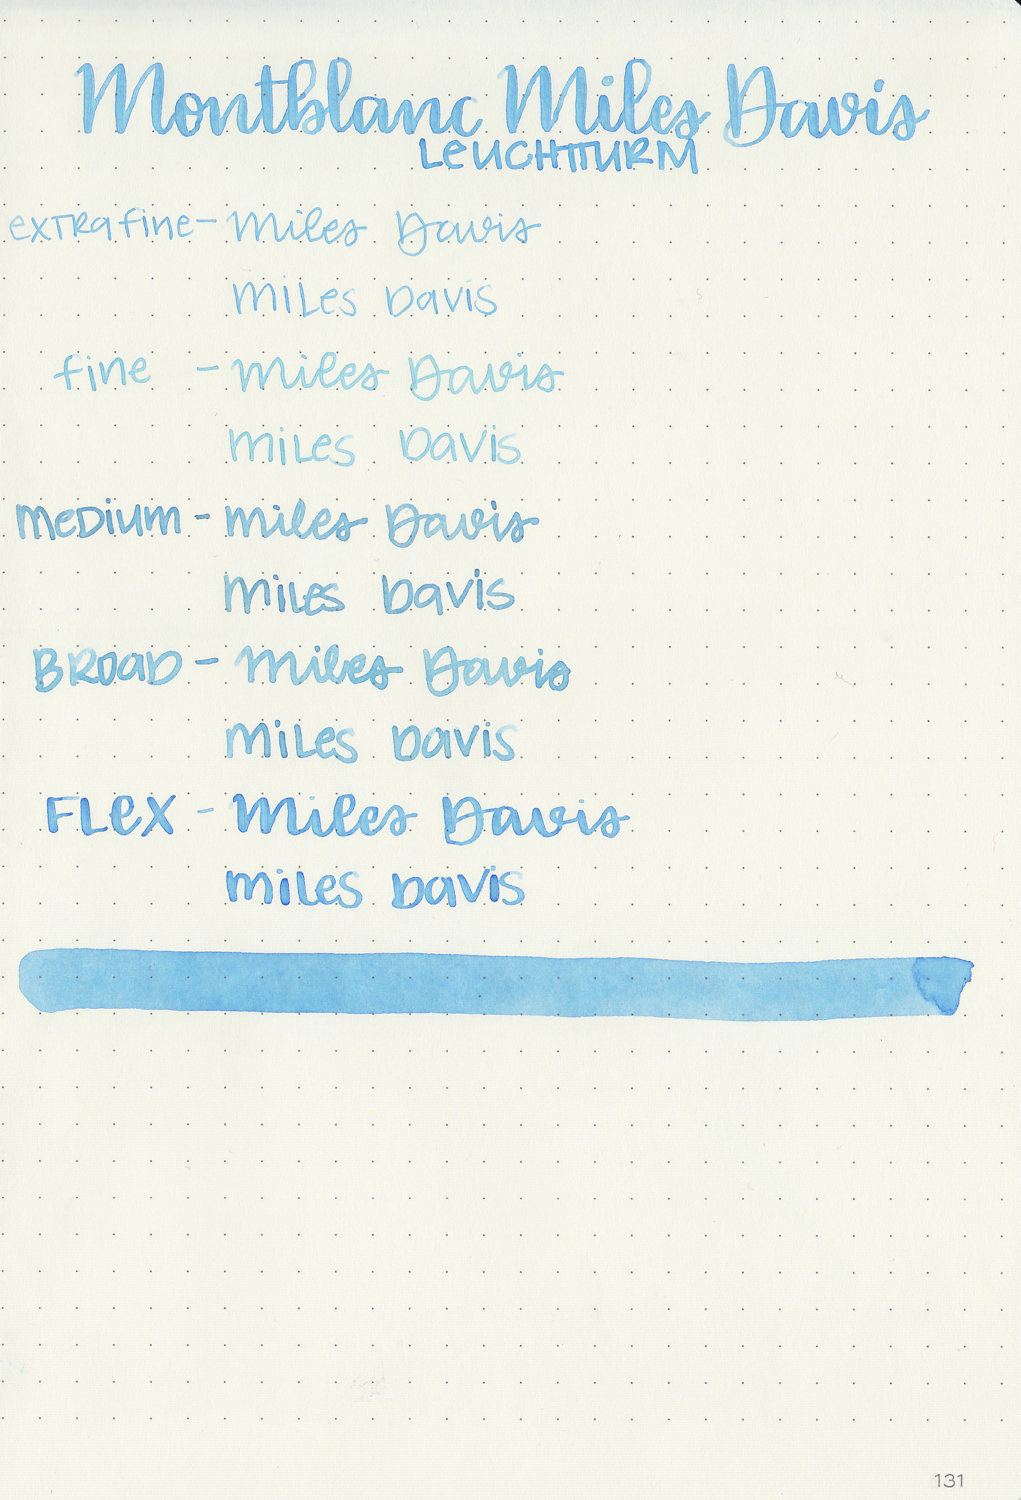 Montblanc Miles Davis
LEUCHTTURM
extrafine - Miles Davis
miles Davis
fine - Miles Davis
miles Davis
medium - miles Davis
miles Davis
Broad - Miles Davis
miles Davis
Flex - Miles Davis
miles Davis
131